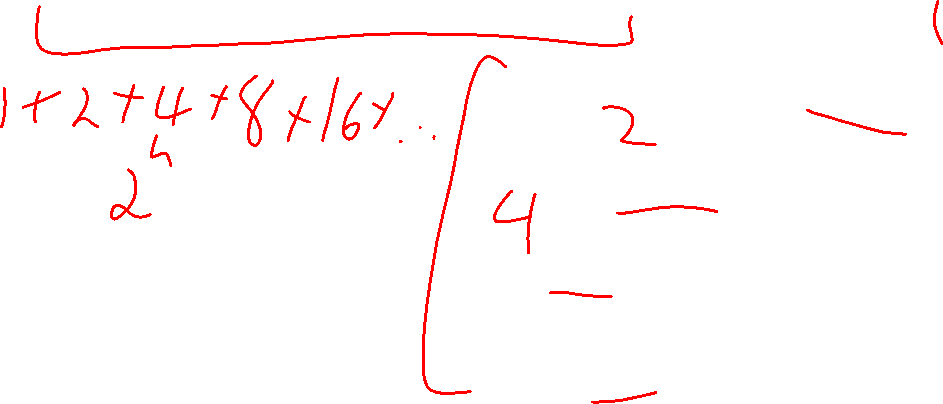 1+2+4+8+16+...
2^n
2
4